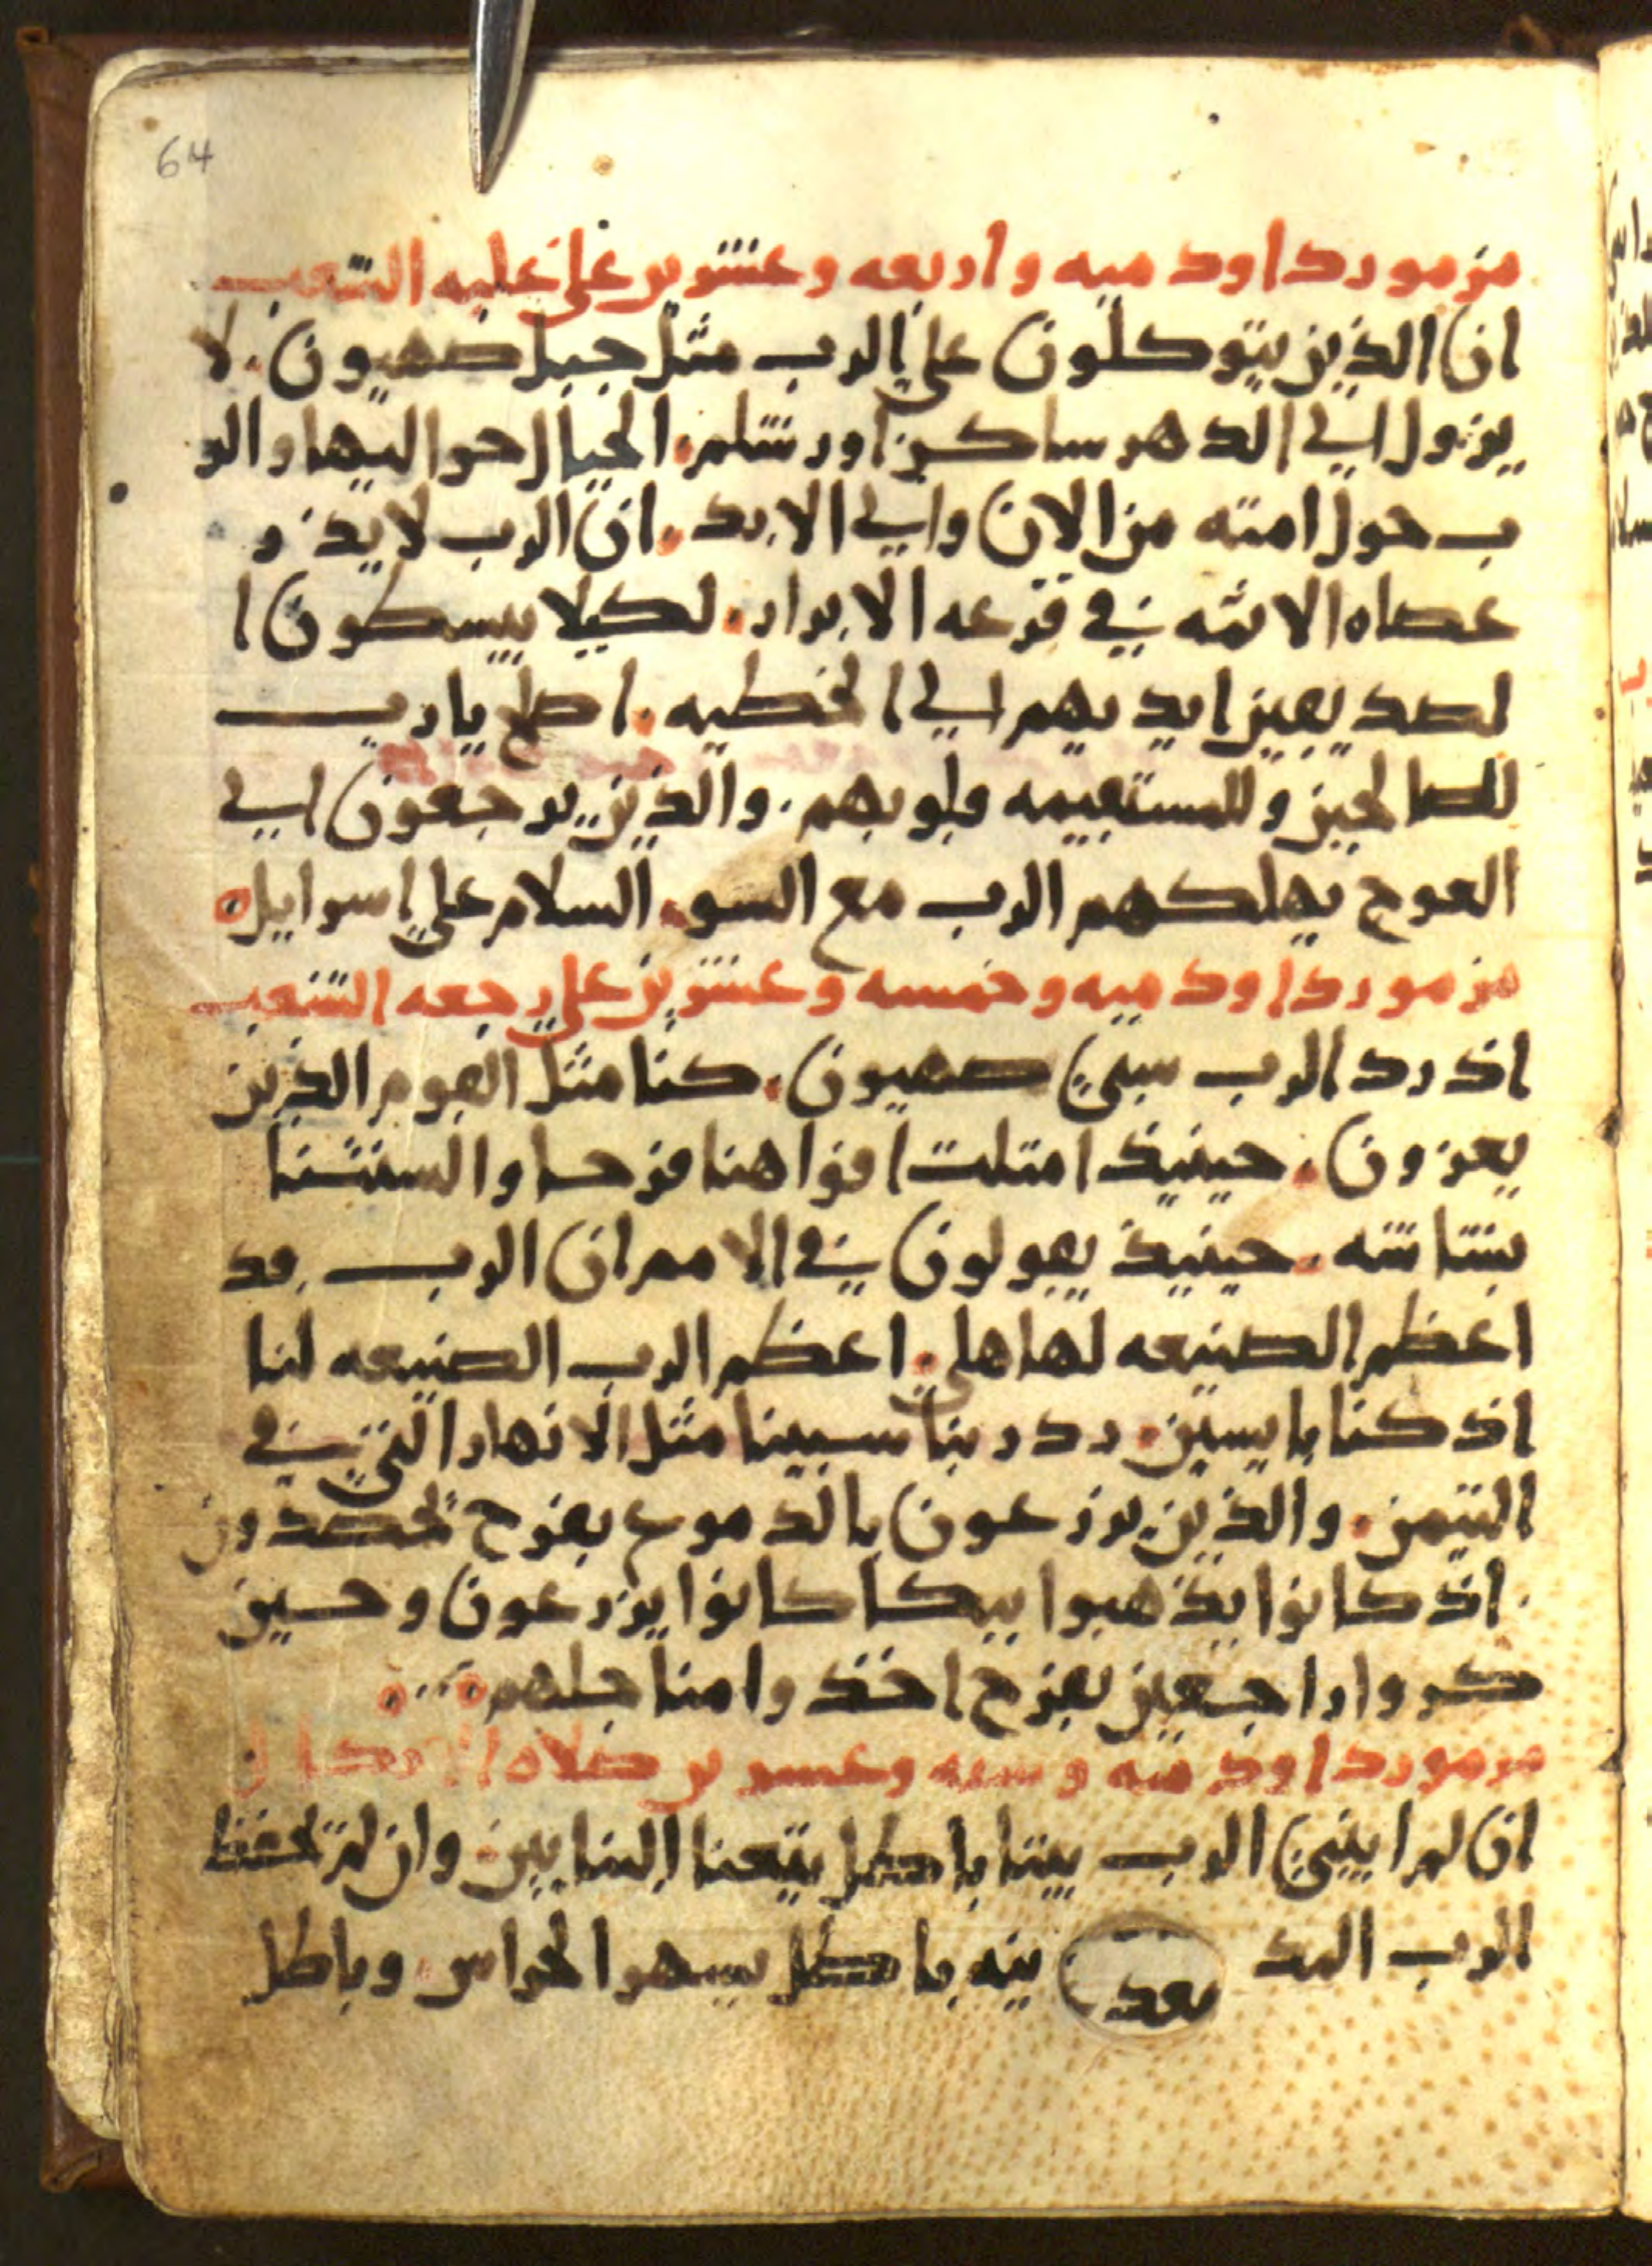 64
مزمور داود ميه واربعه وعشرين على غلبه الشعب
ان الذين يتوكلون علي الرب مثل جبل صهيون. لا
يزول الي الدهر ساكن اورشلم. الجبال حواليها والر
ب حول امته من الان والي الابد. ان الرب لا يذر
عصاه الاثمه في قرعه الابرار. لكيلا يبسطون ا
لصديقين ايديهم الي الخطيه. اصلح يا رب
للصالحين وللمستقيمه قلوبهم. والذين يرجعون الي
العوج يهلكهم الرب مع السو. السلام علي اسرايل
مزمور داود ميه وخمسه وعشرين علي رجعه الشعب
اذ رد الرب سبي صهيون. كنا مثل القوم الذين
يعزون. حينيذ امتلت افواهنا فرحا والسنتنا
بشاشه. حينيذ يقولون في الامم ان الرب قد
اعظم الصنيعه لهاهلي. اعظم الرب الصنيعه لنا
اذ كنا بايسين. رد ربنا سبينا مثل الانهار التي في
التيمن. والذين يزرعون بالدموع بفرح يحصدون
. اذ كانوا يذهبوا ببكا كانوا يزرعون وحين
كروا راجعين بفرح اخذوا مناجلهم
مزمور داود ميه وسته وعشرين صلاه
ان لم ايبني الرب بيتا باطل يتعنا البنايين. وان لم يحفظ
الرب المد ينه باطل يسهوا الحراس. وباطل
بعد